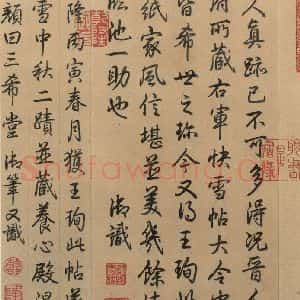 人真跡已不可多得況晉人
府所藏右軍快雪帖大令
皆希世之珍今又得王珣
紙家風信堪並美幾餘清
臨池一助也 御識
隆丙寅春月獲王珣此帖遂
雪中秋二蹟並藏養心殿溫
顏曰三希堂御筆又識